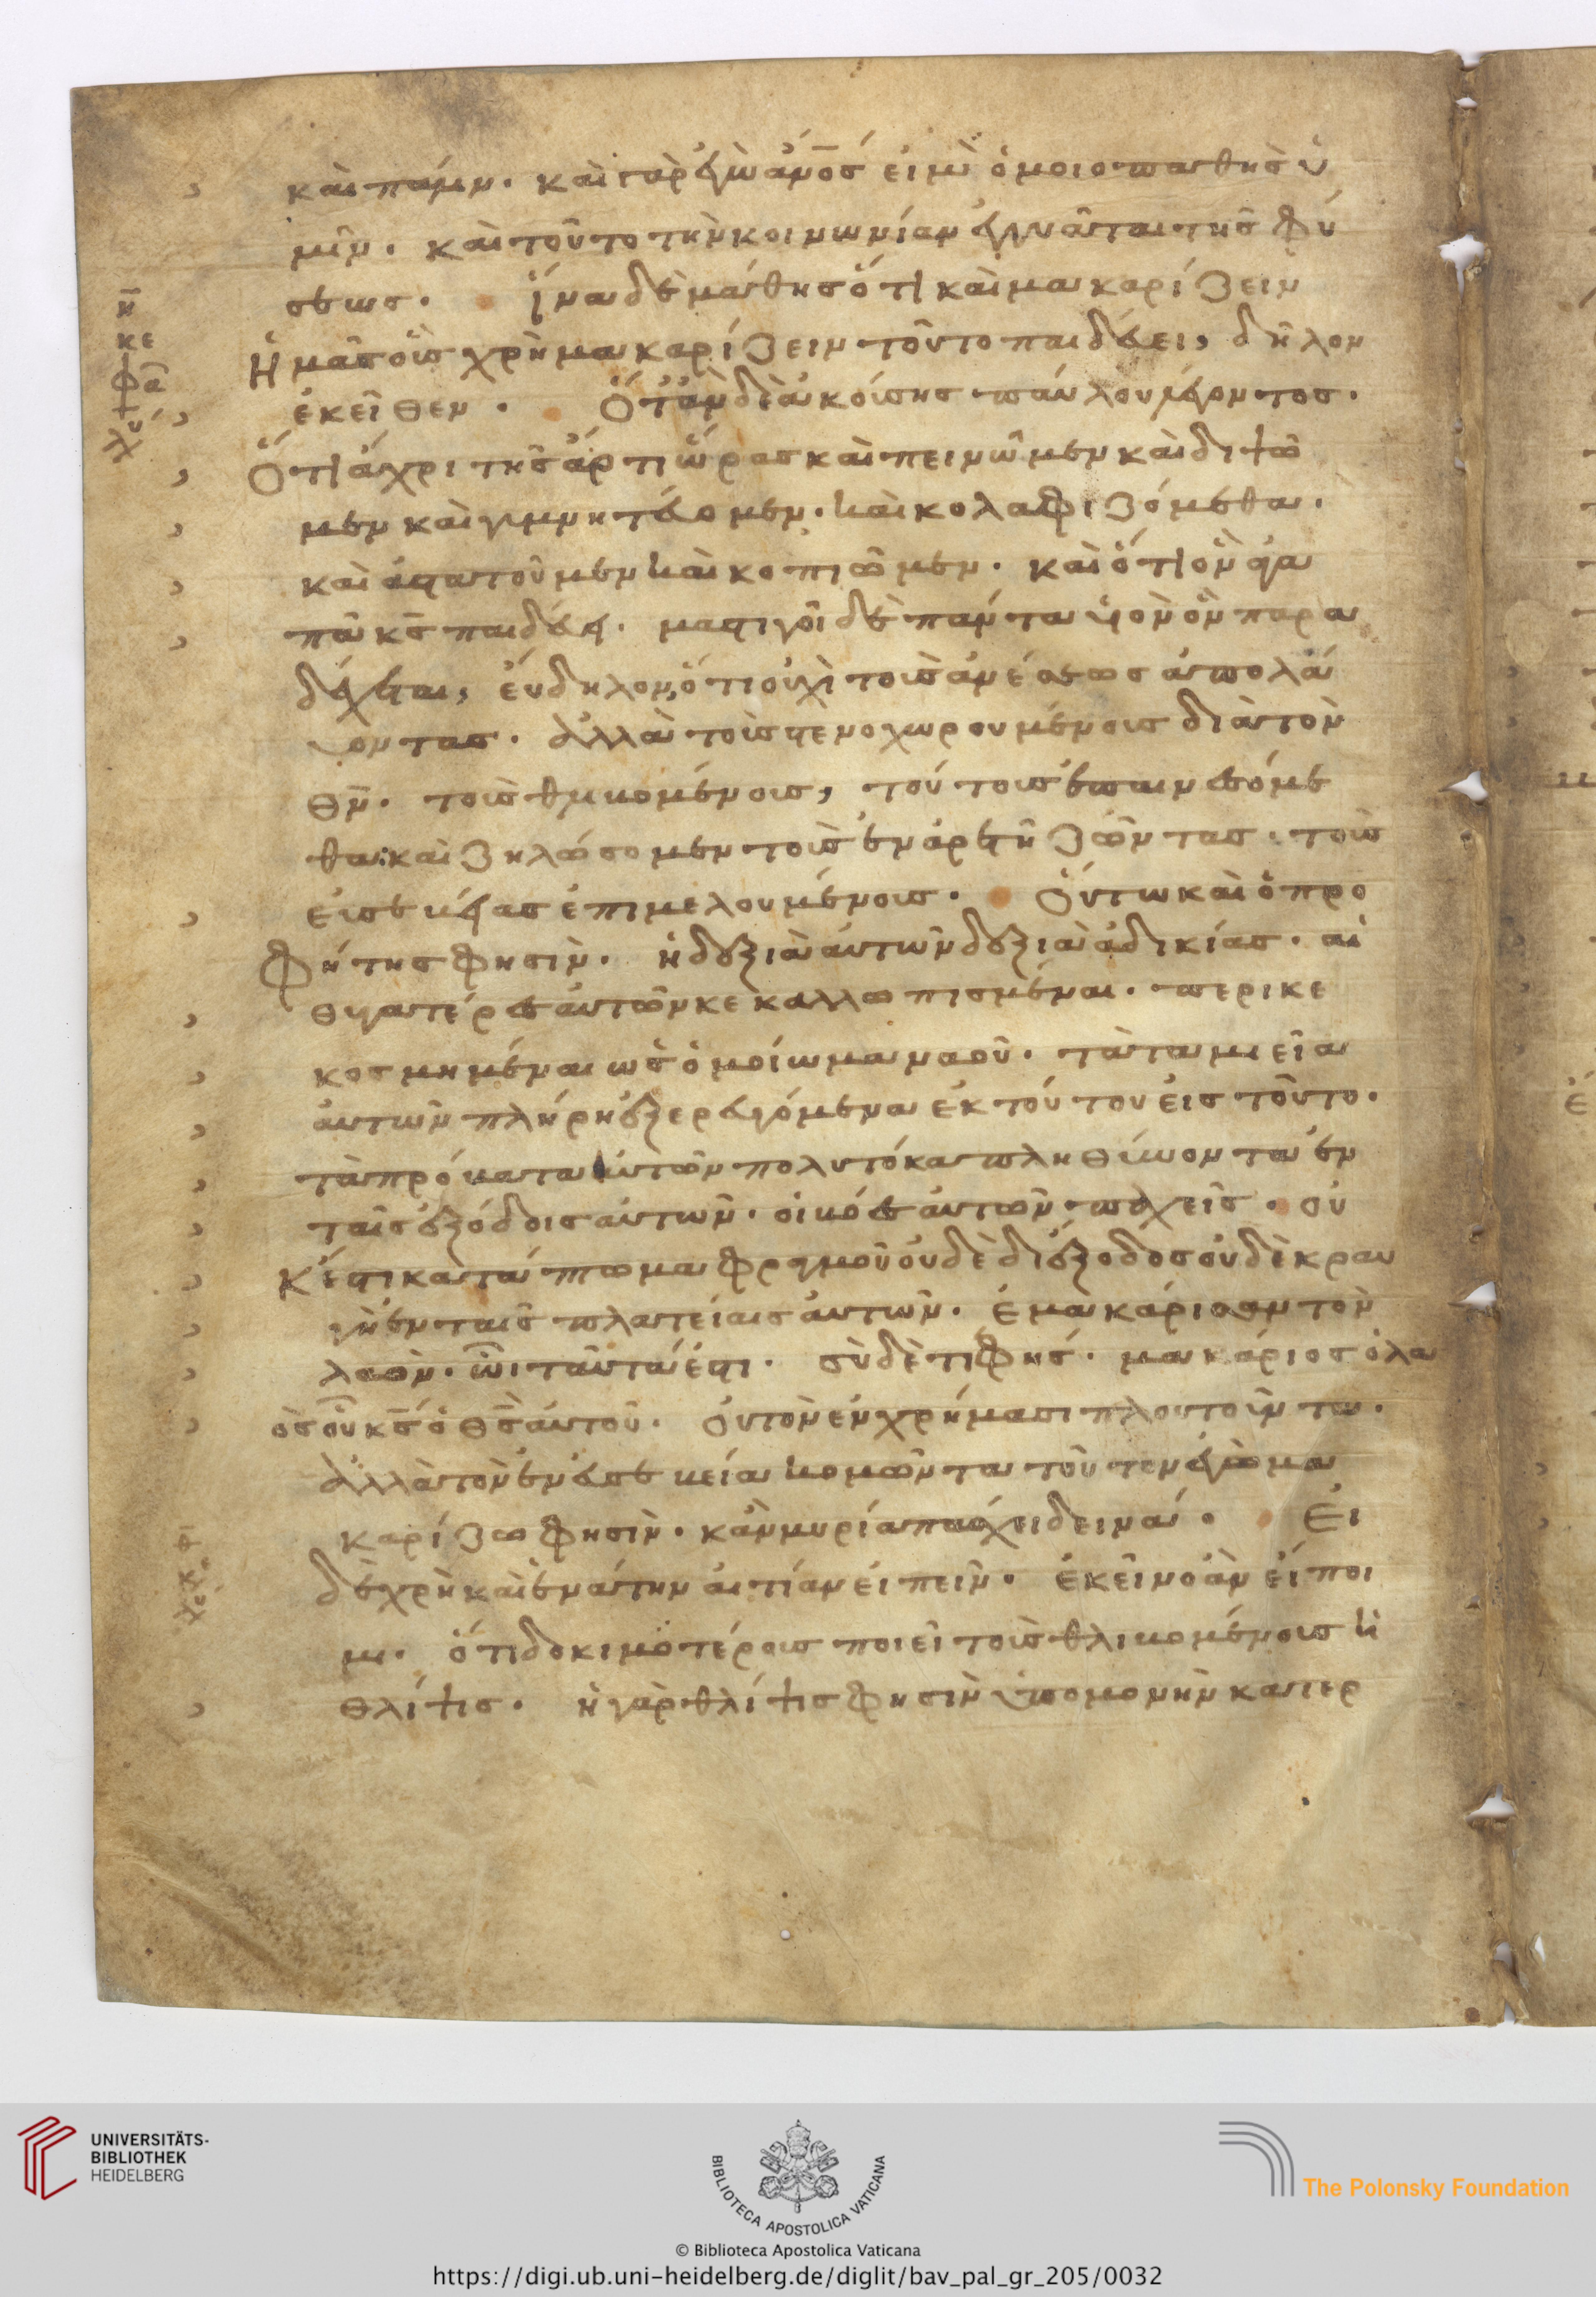 καὶ πάλιν· καὶ γὰρ ἐγὼ ἄν̅ο̅ς εἰμι ὁμοιοπαθὴς ὑ
μῖν· καὶ τοῦτο τὴν κοινωνίαν ἐγγυᾶται τῆς φύ
σεως· ἵνα δὲ μάθης ὅτι καὶ μακαρίζειν
ἡμᾶς οὓς χρὴ μακαρίζειν τοῦτο παιδεύει, δῆλον
ἐκεῖθεν· Ὅταν δὲ ἀκούσης παύλου λέγοντος·
Ὅτι ἄχρι τῆς ἄρτι ὥρας καὶ πεινῶμεν καὶ διψῶ
μεν καὶ γυμνητεύομεν· καὶ κολαφιζόμεθα·
καὶ ἀστατοῦμεν καὶ κοπιῶμεν· καὶ ὅτι ὃν ἀγα
πᾶ κ̅ς̅ παιδεύει· μαστιγοῖ δὲ πάντα υἱὸν ὃν παρα
δέχεται, εὔδηλον, ὅτι οὐχὶ τοὺς ἀνέσεως ἀπολαύ
οντας· ἀλλὰ τοὺς στενοχωρουμένους διὰ τὸν
θ̅ν̅· τοὺς θλιβομένους, τούτους ἐπαινεσόμε
θα· καὶ ζηλώσομεν τοὺς ἐν ἀρετῆ ζῶντας· τοὺς
εὐσεβείας ἐπιμελουμένους· Οὕτω καὶ ὁ προ
φήτης φησίν· ἡ δεξιὰ αὐτῶν δεξιὰ ἀδικίας· αἱ
θυγατέρες αὐτῶν κεκαλλωπισμέναι· περικε
κοσμημέναι ὡς ὁμοίωμα ναοῦ· τὰ ταμιεῖα
αὐτῶν πλήρη ἐξερευγόμενα ἐκ τούτου εἰς τοῦτο·
τὰ πρόβατα αὐτῶν πολυτόκα πληθύνοντα ἐν
ταῖς ἐξόδοις αὐτῶν· οἱ βόες αὐτῶν παχεῖς· οὐ
κ ἔστι κατάπτωμα φραγμοῦ οὐδὲ διέξοδος οὐδὲ κραυ
γὴ ἐν ταῖς πλατείαις αὐτῶν· ἐμακάρισαν τὸν
λαὸν· ὧι ταῦτά ἐστι· σὺ δὲ τί φής· μακάριος ὁ λα
ὸς οὗ κ̅ς̅ ὁ θ̅ς̅ αὐτοῦ· οὐ τὸν ἐν χρήμασι πλουτοῦντα·
ἀλλὰ τὸν ἐν εὐσεβεία κομῶντα τοῦτον ἐγὼ μα
καρίζω φησίν· κἂν μυρία πάσχει δεινά· Εἰ
δὲ χρὴ καὶ ἐνάτην αἰτίαν εἰπεῖν· ἐκεῖνο ἂν εἴποι
μι· ὅτι δοκιμωτέρους ποιεῖ τοὺς θλιβομένους ἡ
θλίψις· ἡ γὰρ θλίψις φησὶν ὑπομονὴν κατερ
UNIVERSITÄTS-
BIBLIOTHEK
HEIDELBERG
BIBLIOTECA APOSTOLICA VATICANA
The Polonsky Foundation
© Biblioteca Apostolica Vaticana
https://digi.ub.uni-heidelberg.de/diglit/bav_pal_gr_205/0032